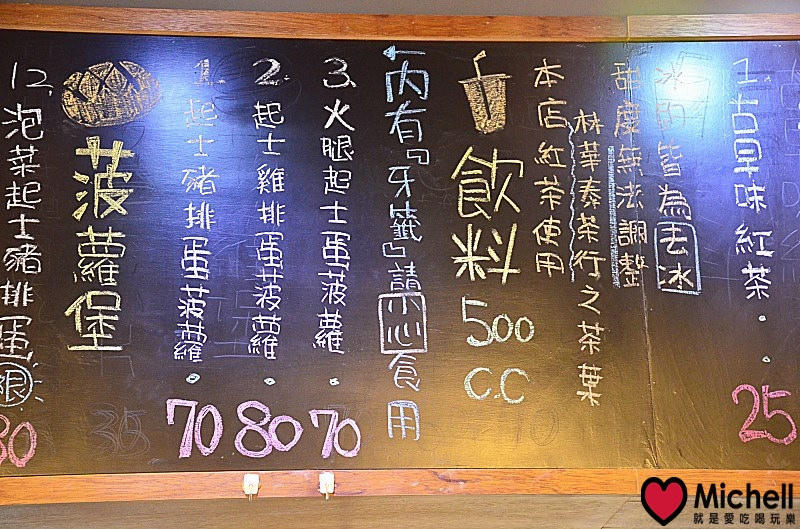 12.泡菜起士豬排蛋限
菠蘿堡
1.起士豬排蛋菠蘿.70
2.起士雞排蛋菠蘿.80
3.火腿起士蛋菠蘿.70
←內有『牙籤』請小心食用
飲料500cc
本店紅茶使用
林華泰茶行之茶葉
甜度無法調整
冰的皆為去冰
1.古早味紅茶..25
Michell
就是愛吃喝玩樂